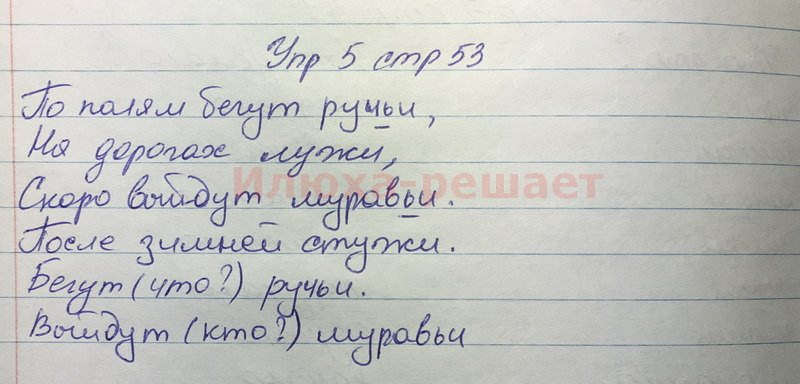 Упр 5 стр 53
По полям бегут ручьи,
На дорогах лужи,
Илюха-решает
Скоро выйдут муравьи.
После зимней стужи.
Бегут (что?) ручьи.
Выйдут (кто?) муравьи